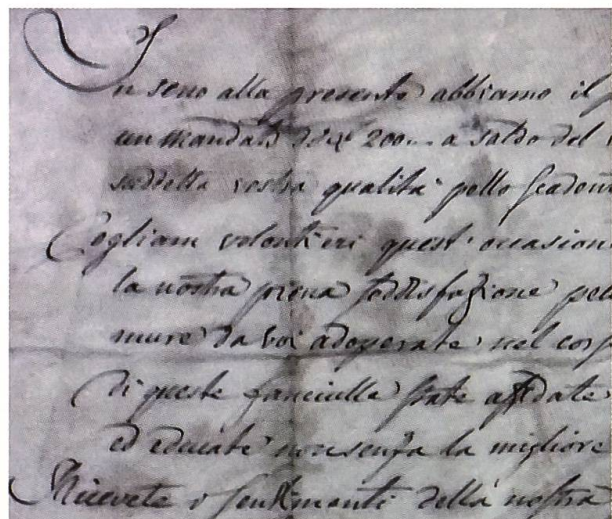 In seno alla presente abbiamo il
un mandato di 200 a saldo del
suddetta vostra qualità pello scadent
Cogliam volontieri quest'occasion
la nostra piena soddisfazione pel
mure da voi adoperate nel cors
di queste fanciulle state affidate
ed educate non senza la migliore
Ricevete i sentimenti della nostra